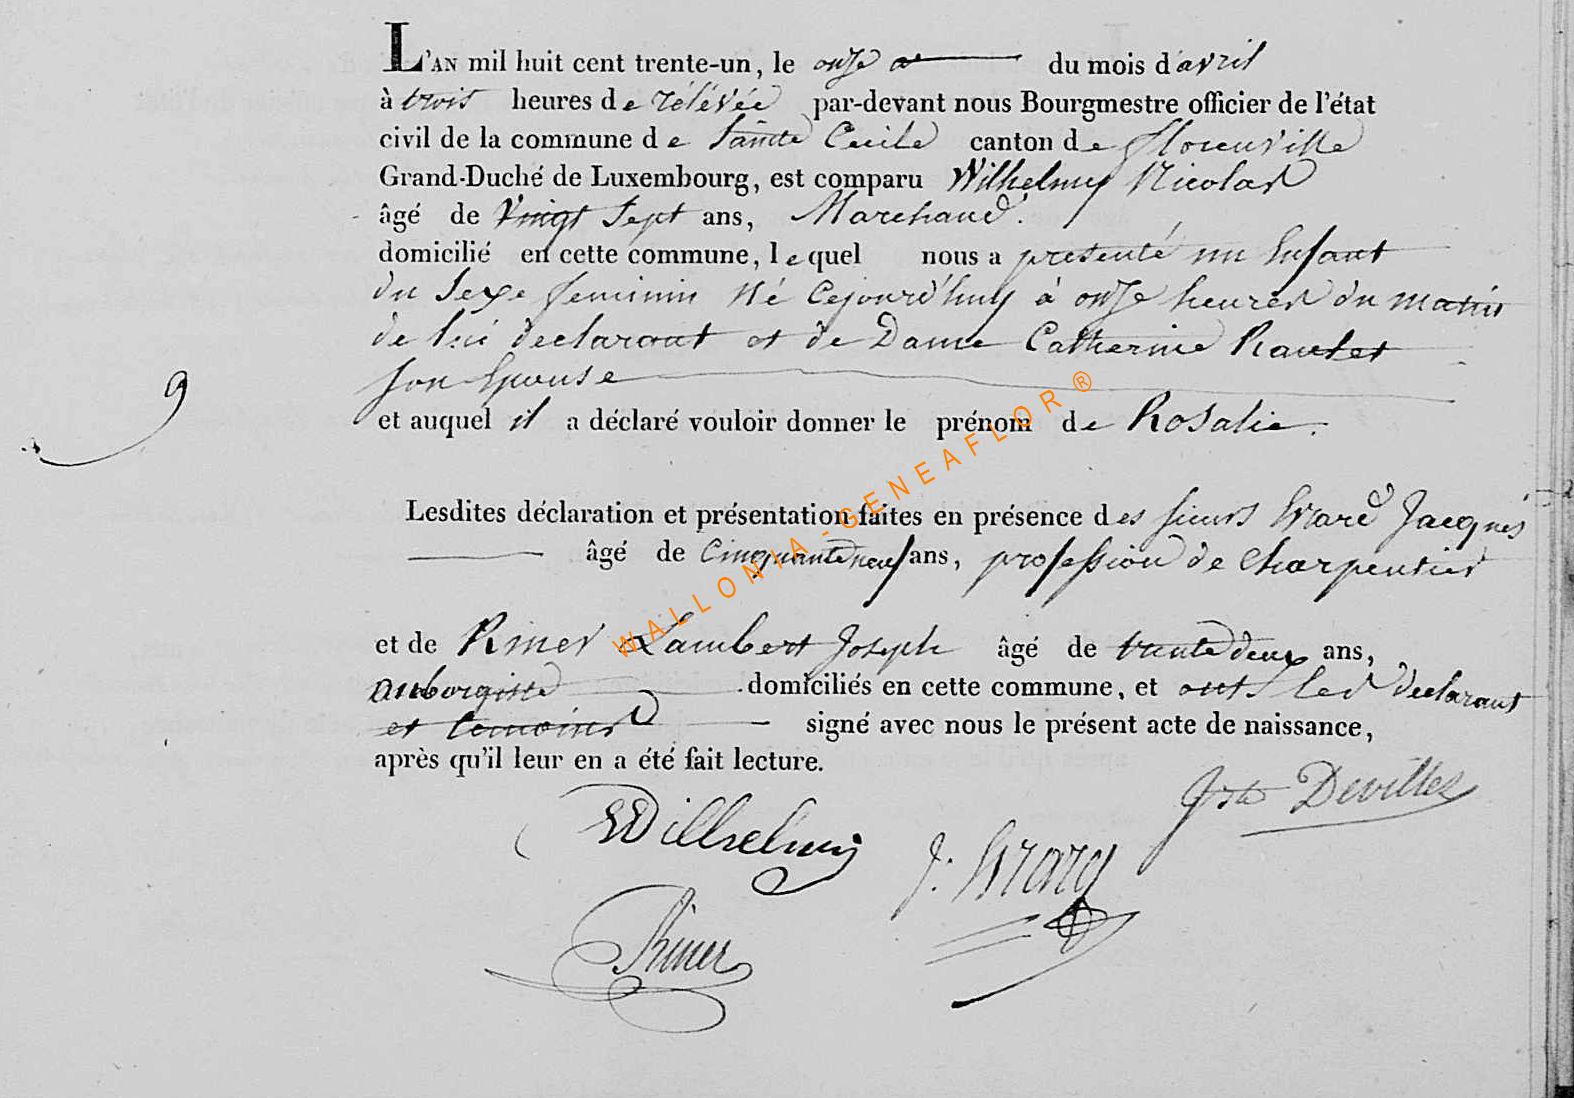 L'AN mil huit cent trente-un, le onze du mois d'avril
à trois heures de rélévée par-devant nous Bourgmestre officier de l'état
civil de la commune de Sainte Cecile canton de florenville
Grand-Duché de Luxembourg, est comparu Wilhelmy Nicolas
âgé de Vingt Sept ans, Marchand.
domicilié en cette commune, lequel nous a presenté un Enfant
du Sexe feminin Né Cejourd'huy à onze heures du matin
de lui declarant et de Dame Catherine Raulet
son Epouse
9
et auquel il a déclaré vouloir donner le prénom de Rosalie.
Lesdites déclaration et présentation faites en présence des sieurs Evard Jacques
âgé de Cinquante neuf ans, profession de Charpentier
et de Riner Lambert Joseph âgé de trente deux ans,
aubergiste domiciliés en cette commune, et ont les declarant
et temoins signé avec nous le présent acte de naissance,
après qu'il leur en a été fait lecture.
Devillez
Wilhelmy
J: Evard
Riner
WALLONIA-GENEAFLOR®